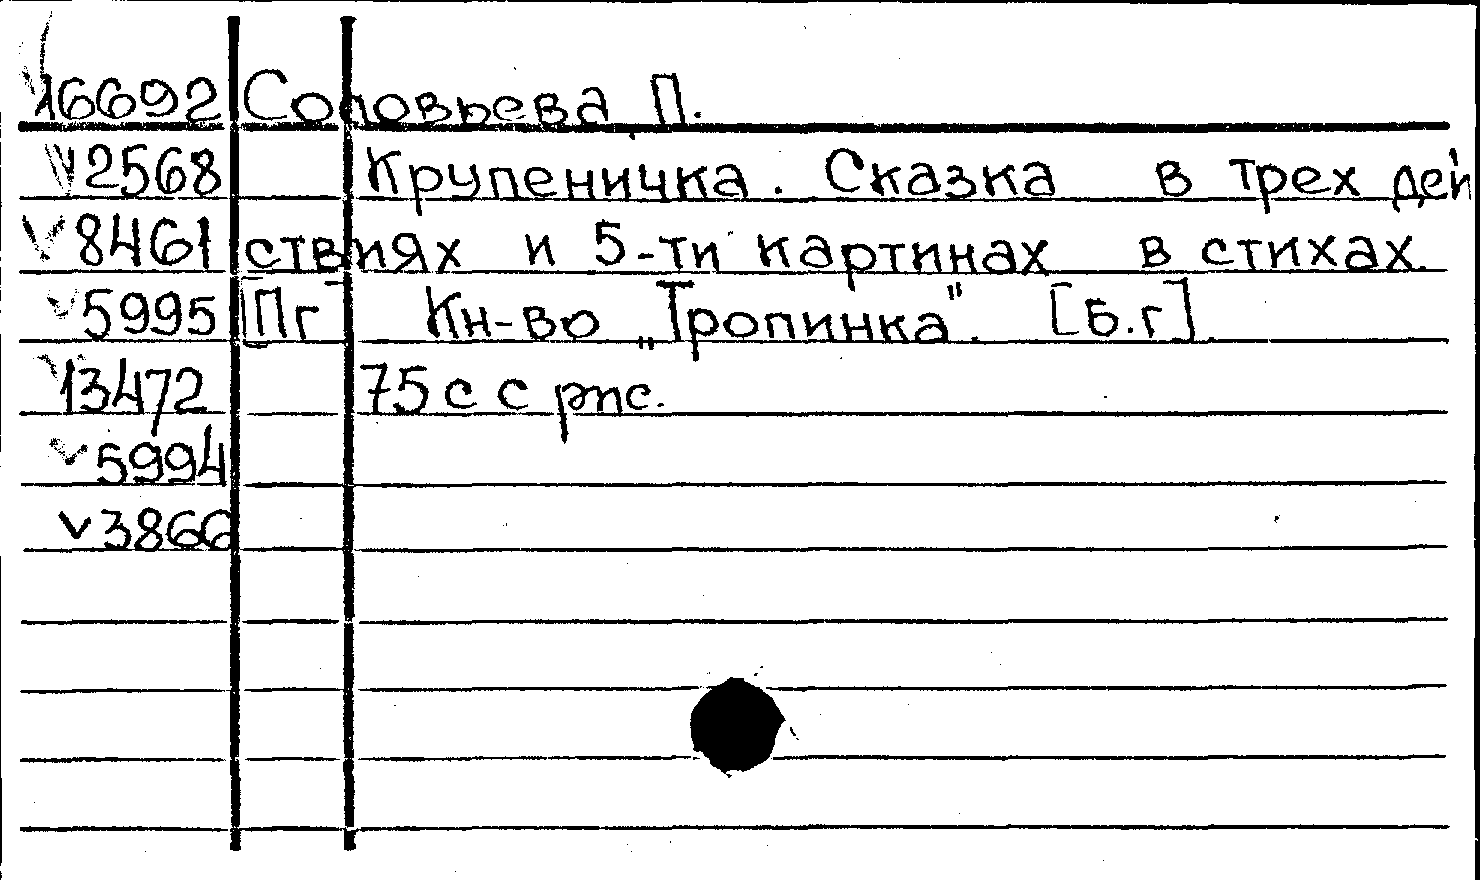 16692 Соловьева П.
V 2568 Крупеничка. Сказка в трех дей
V 8461 ствиях и 5-ти картинах в стихах.
V 5995 [Пг] Кн-во „Тропинка". [б.г].
13472 75 с с рис.
V 5994
V 3866